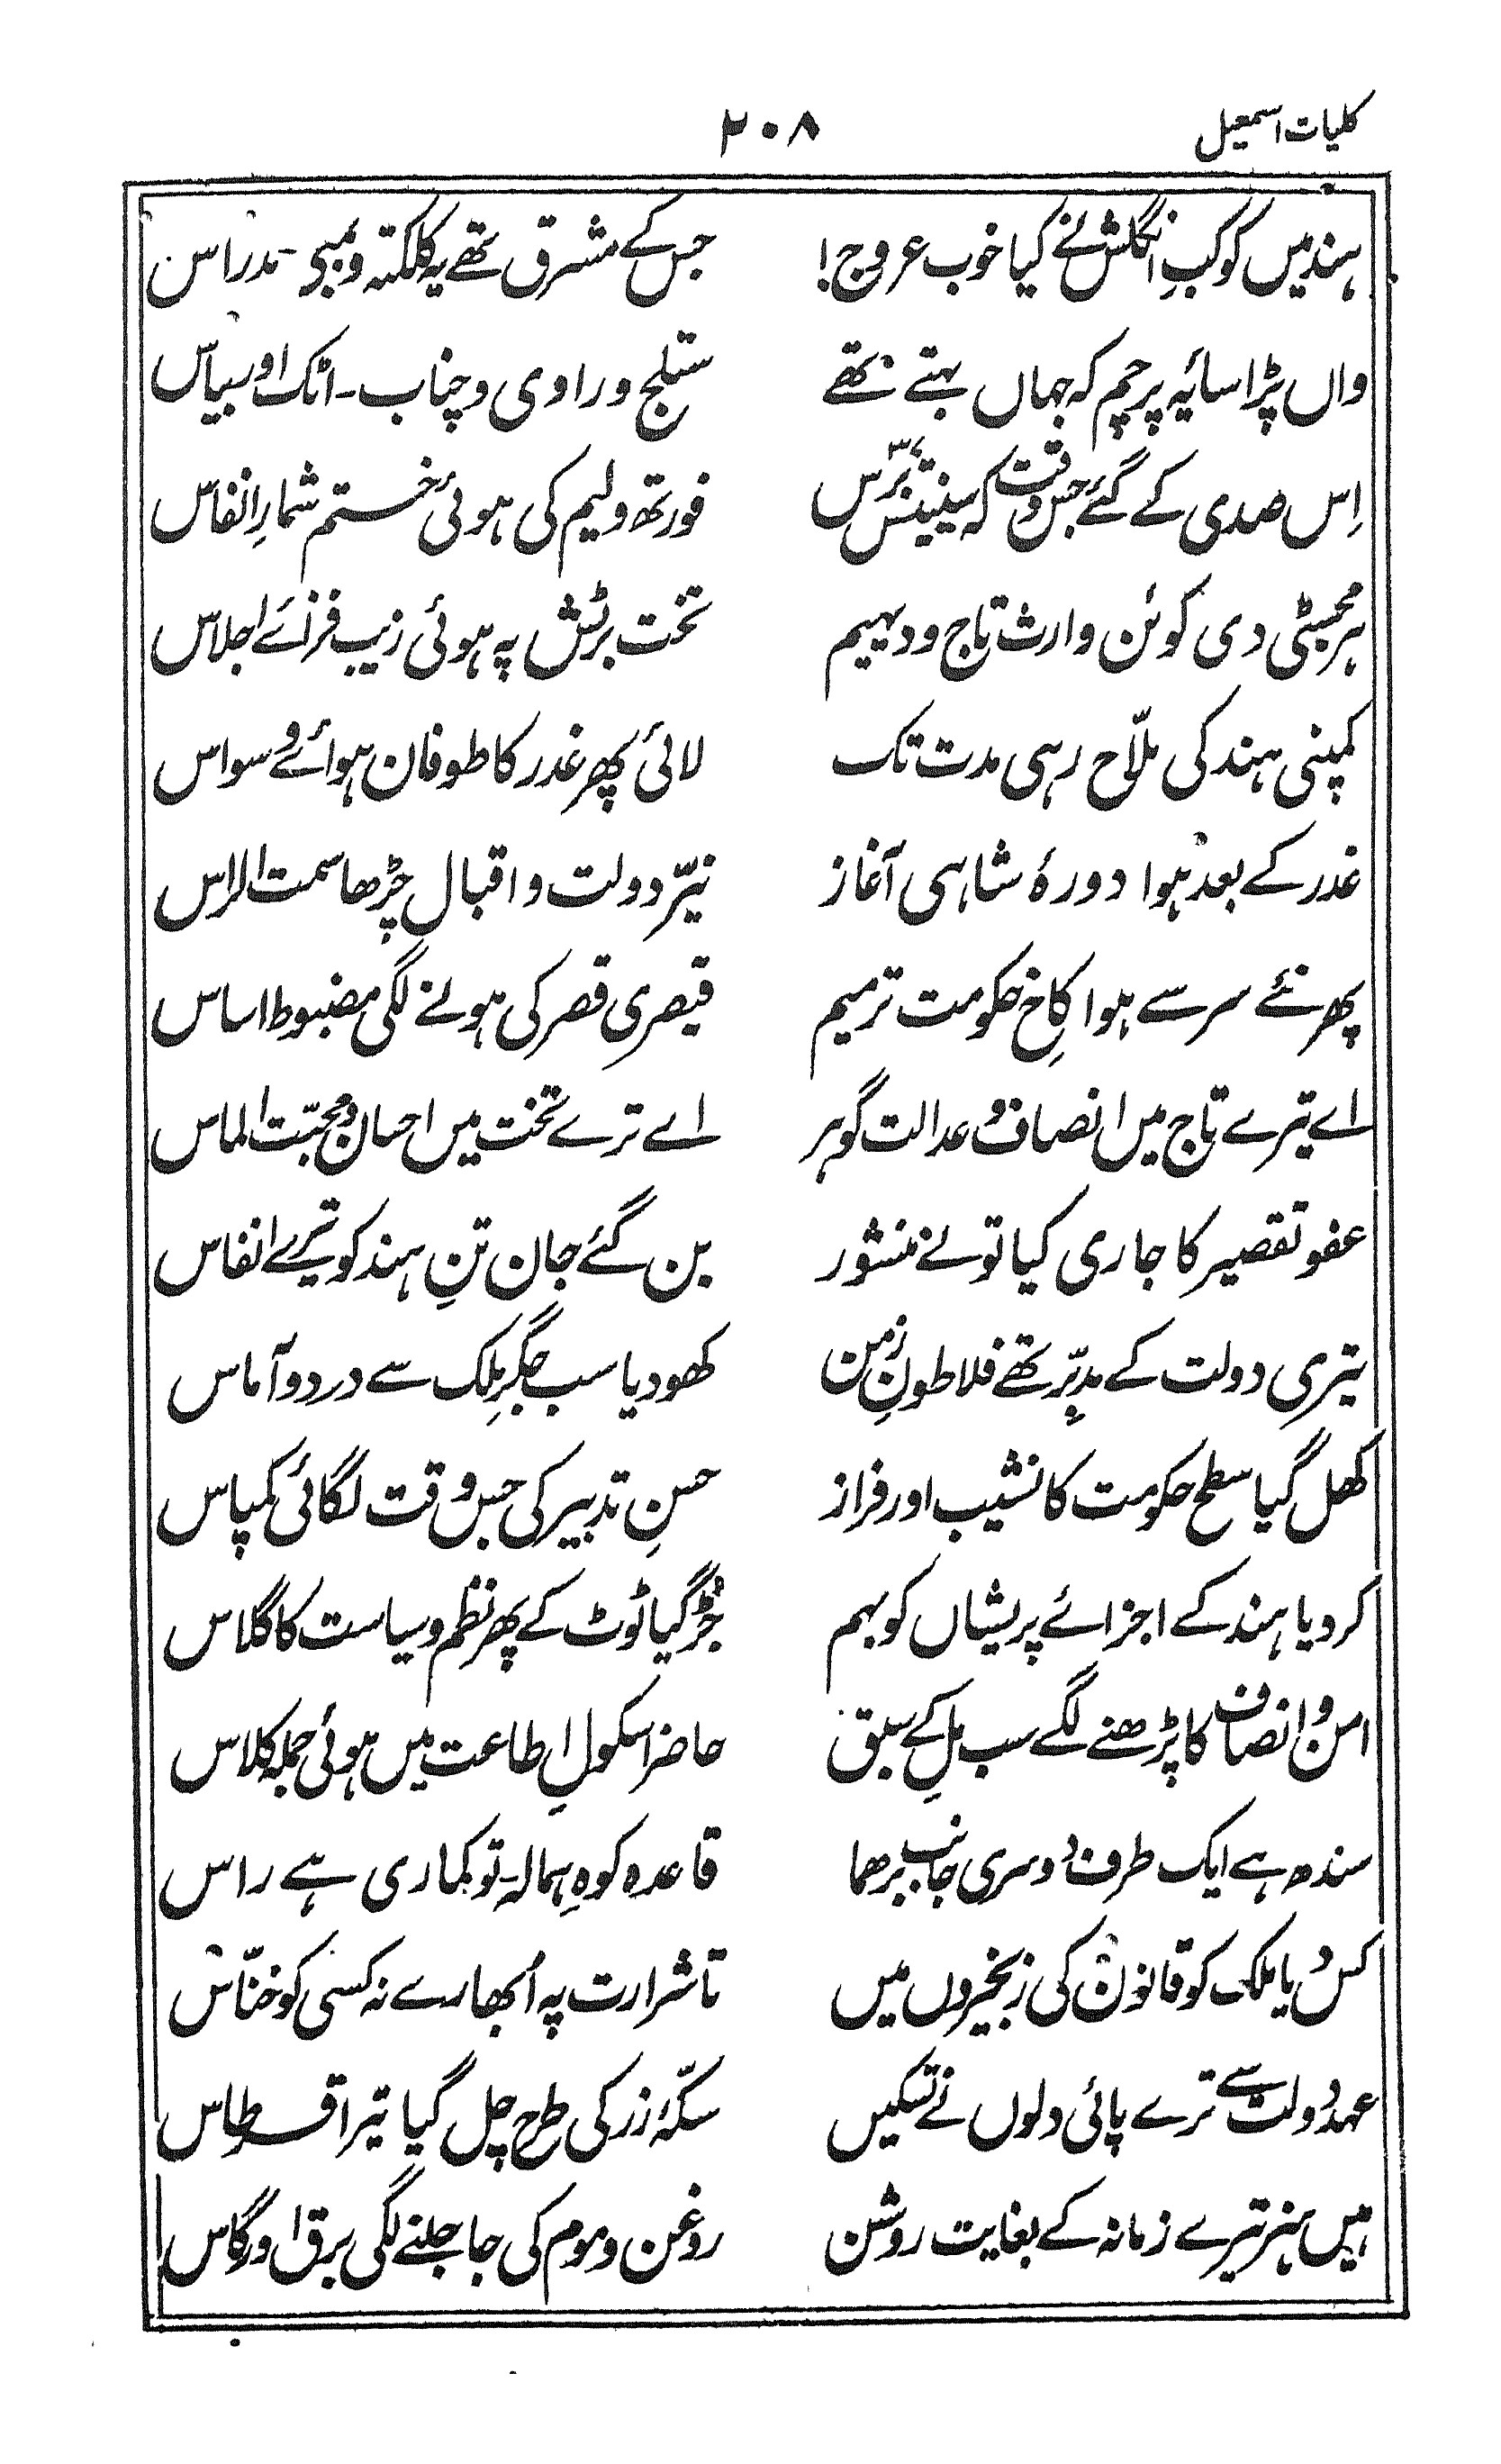 کلیات اسمعیل ۲۰۸
ہند میں کوکبِ انگلش نے کیا خوب عروج! جس کے مشرق تھے یہ کلکتہ و بمبی - مدراس
واں پڑا سایۂ پرچم کہ جہاں بہتے تھے ستلج و راوی و چناب - اٹک اور بیاس
اِس صدی کے گئے جس وقت کہ سینتیس ۳۷ برس فورتھ ولیم کی ہوئی ختم شمارِ انفاس
ہر مجسٹی دی کوئن وارث تاج و دیہیم تخت برٹش پہ ہوئی زیب فزائے اجلاس
کمپنی ہند کی ملّاح رہی مدت تک لائی پھر غدر کا طوفان ہوائے وسواس
غدر کے بعد ہوا دورۂ شاہی آغاز نیّر دولت و اقبال چڑھا سمت الراس
پھر نئے سر سے ہوا کاخِ حکومت ترمیم قیصری قصر کی ہونے لگی مضبوط اساس
اے تیرے تاج میں انصاف و عدالت گوہر اے ترے تخت میں احسان و محبّت الماس
عفو تقصیر کا جاری کیا تو نے منشور بن گئے جان تنِ ہند کو تیرے انفاس
تیری دولت کے مدبّر تھے فلاطونِ زمن کھو دیا سب جگرِ ملک سے درد و آماس
کھل گیا سطح حکومت کا نشیب اور فراز حسنِ تدبیر کی جس وقت لگائی کمپاس
کر دیا ہند کے اجزائے پریشاں کو بہم جُڑ گیا ٹوٹ کے پھر نظم و سیاست کا گلاس
امن و انصاف کا پڑھنے لگے سب مل کے سبق حاضر اسکولِ اطاعت میں ہوئی جملہ کلاس
سندھ ہے ایک طرف دوسری جانب برھما قاعدہ کوہِ ہمالہ - تو کماری ہے راس
کس دیا ملک کو قانون کی زنجیروں میں تا شرارت پہ اُبھارے نہ کسی کو خنّاس
عہد دولت سے ترے پائی دلوں نے تسکیں سکّۂ زر کی طرح چل گیا تیرا قرطاس
ہیں ہنر تیرے زمانہ کے بغایت روشن روغن و موم کی جا جلنے لگی برق اور گاس